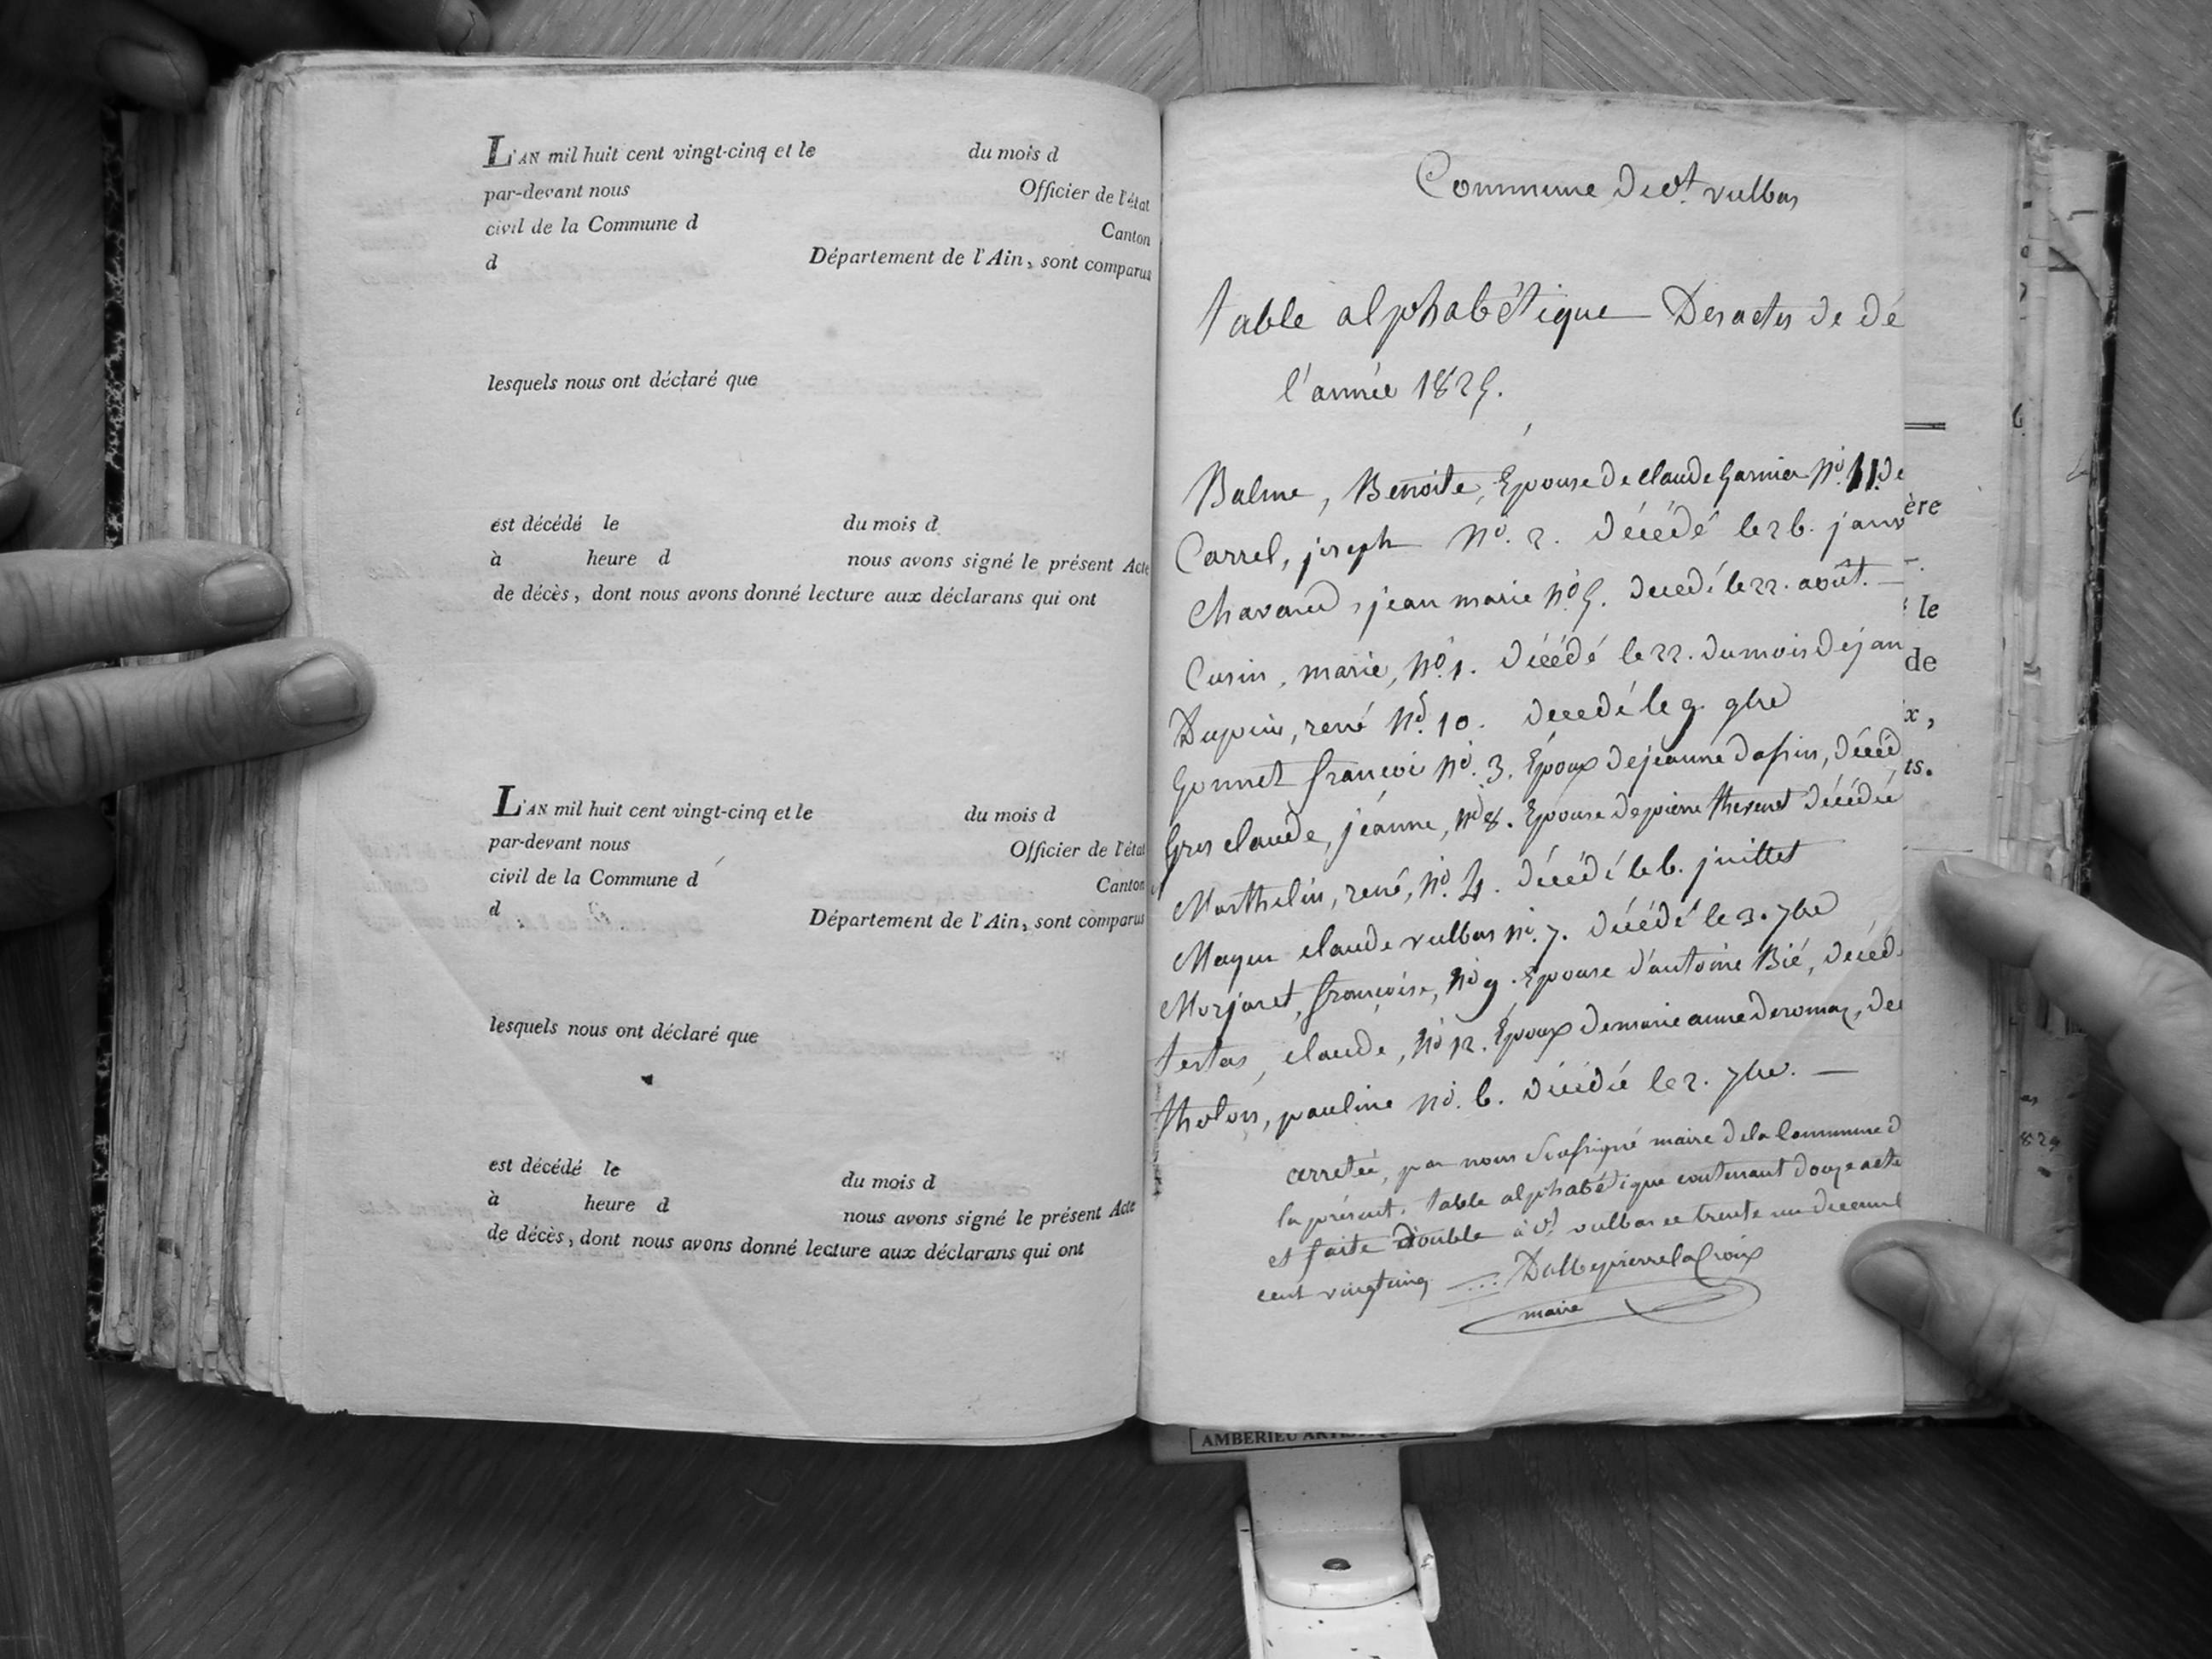 L'AN mil huit cent vingt-cinq et le du mois d
par-devant nous Officier de l'état
civil de la Commune d Canton
d Département de l'Ain, sont comparus
lesquels nous ont déclaré que
est décédé le du mois d
à heure d nous avons signé le présent Acte
de décès, dont nous avons donné lecture aux déclarans qui ont
L'AN mil huit cent vingt-cinq et le du mois d
par-devant nous Officier de l'état
civil de la Commune d Canton
d Département de l'Ain, sont comparus
lesquels nous ont déclaré que
est décédé le du mois d
à heure d nous avons signé le présent Acte
de décès, dont nous avons donné lecture aux déclarans qui ont
Commune de St. vulbas
table alphabétique Des actes de dé
l'année 1825.
Balme, Benoite, Epouse de claude Garnier No. 11. De
Carrel, joseph No. 2. Décédé le 26. janv
Chavand, jean marie No 5. Decedé le 22. août. —
Cusin, marie, No. 1. Décédé le 22. du mois de jan
Dupuis, rené No. 10. Decedé le 9. 9bre
Gonnet françois No. 3. Epoux de jeanne dassin, Décéd
Gros claude, jeanne, No 8. Epouse de pierre thevenet Décédée
Marthelin, rené, No. 4. Décédé le 6. juillet
Mayeu claude vulbas No. 7. Décédé le 3. 7bre
Morjaret, françoise, No 9. Epouse d'antoine Bié, Décéd
testas, claude, No 12. Epoux de marie anne deromaz, De
tholon, pauline No. 6. Décédée le 2. 7bre. —
arretée, par nous Soussigné maire de la Commune d
la présent. table alphabétique contenant douze acte
et faite Double à St. vulbas ce trente un decemb
cent vingt cinq Dalby pierre la Croix
maire
ère
le
de
x,
ts.
AMBERIEU